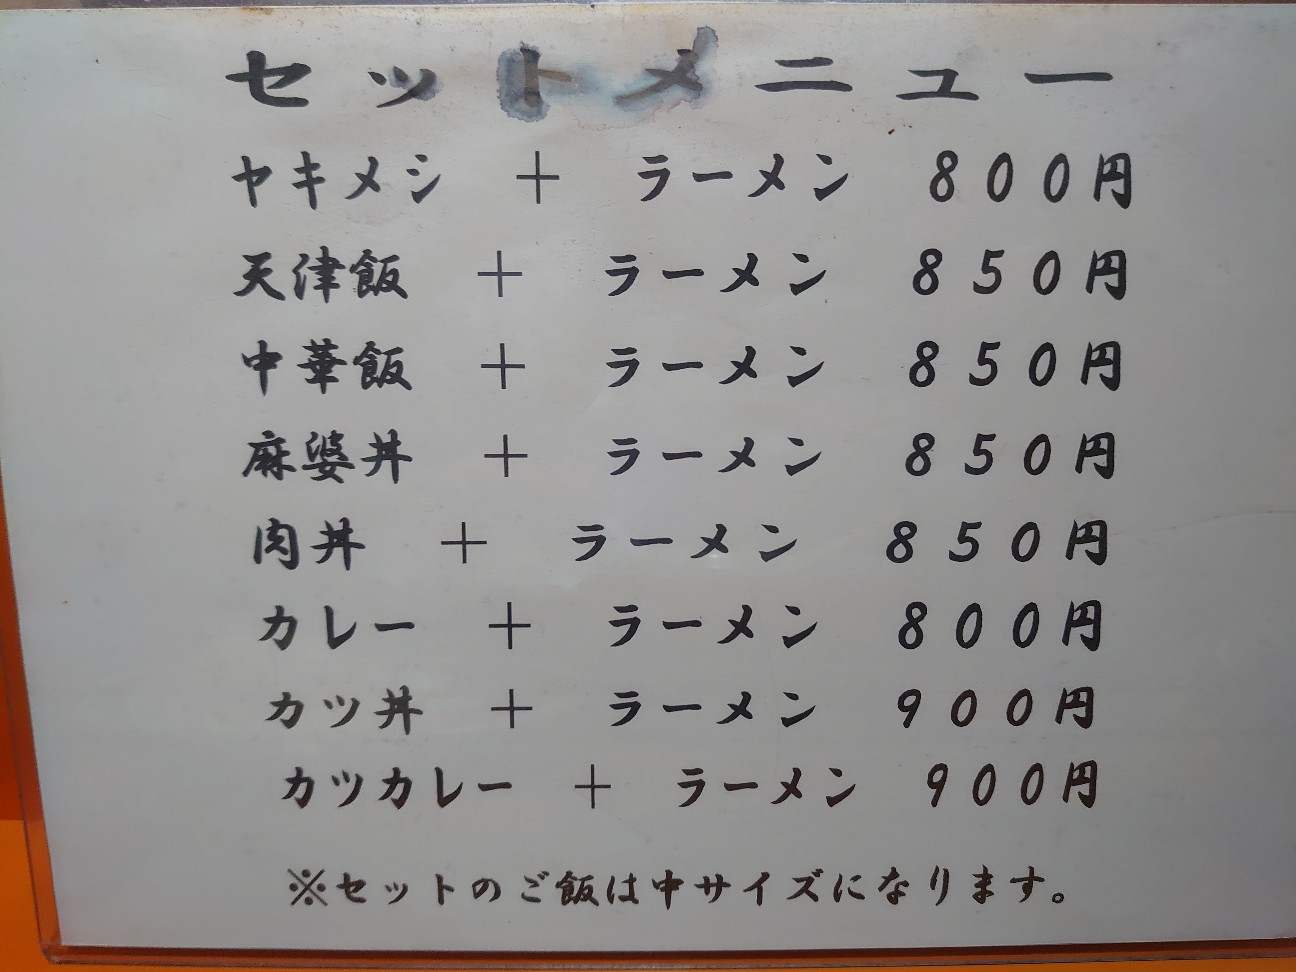 セットメニュー
ヤキメシ ＋ ラーメン ８００円
天津飯 ＋ ラーメン ８５０円
中華飯 ＋ ラーメン ８５０円
麻婆丼 ＋ ラーメン ８５０円
肉丼 ＋ ラーメン ８５０円
カレー ＋ ラーメン ８００円
カツ丼 ＋ ラーメン ９００円
カツカレー ＋ ラーメン ９００円
※セットのご飯は中サイズになります。